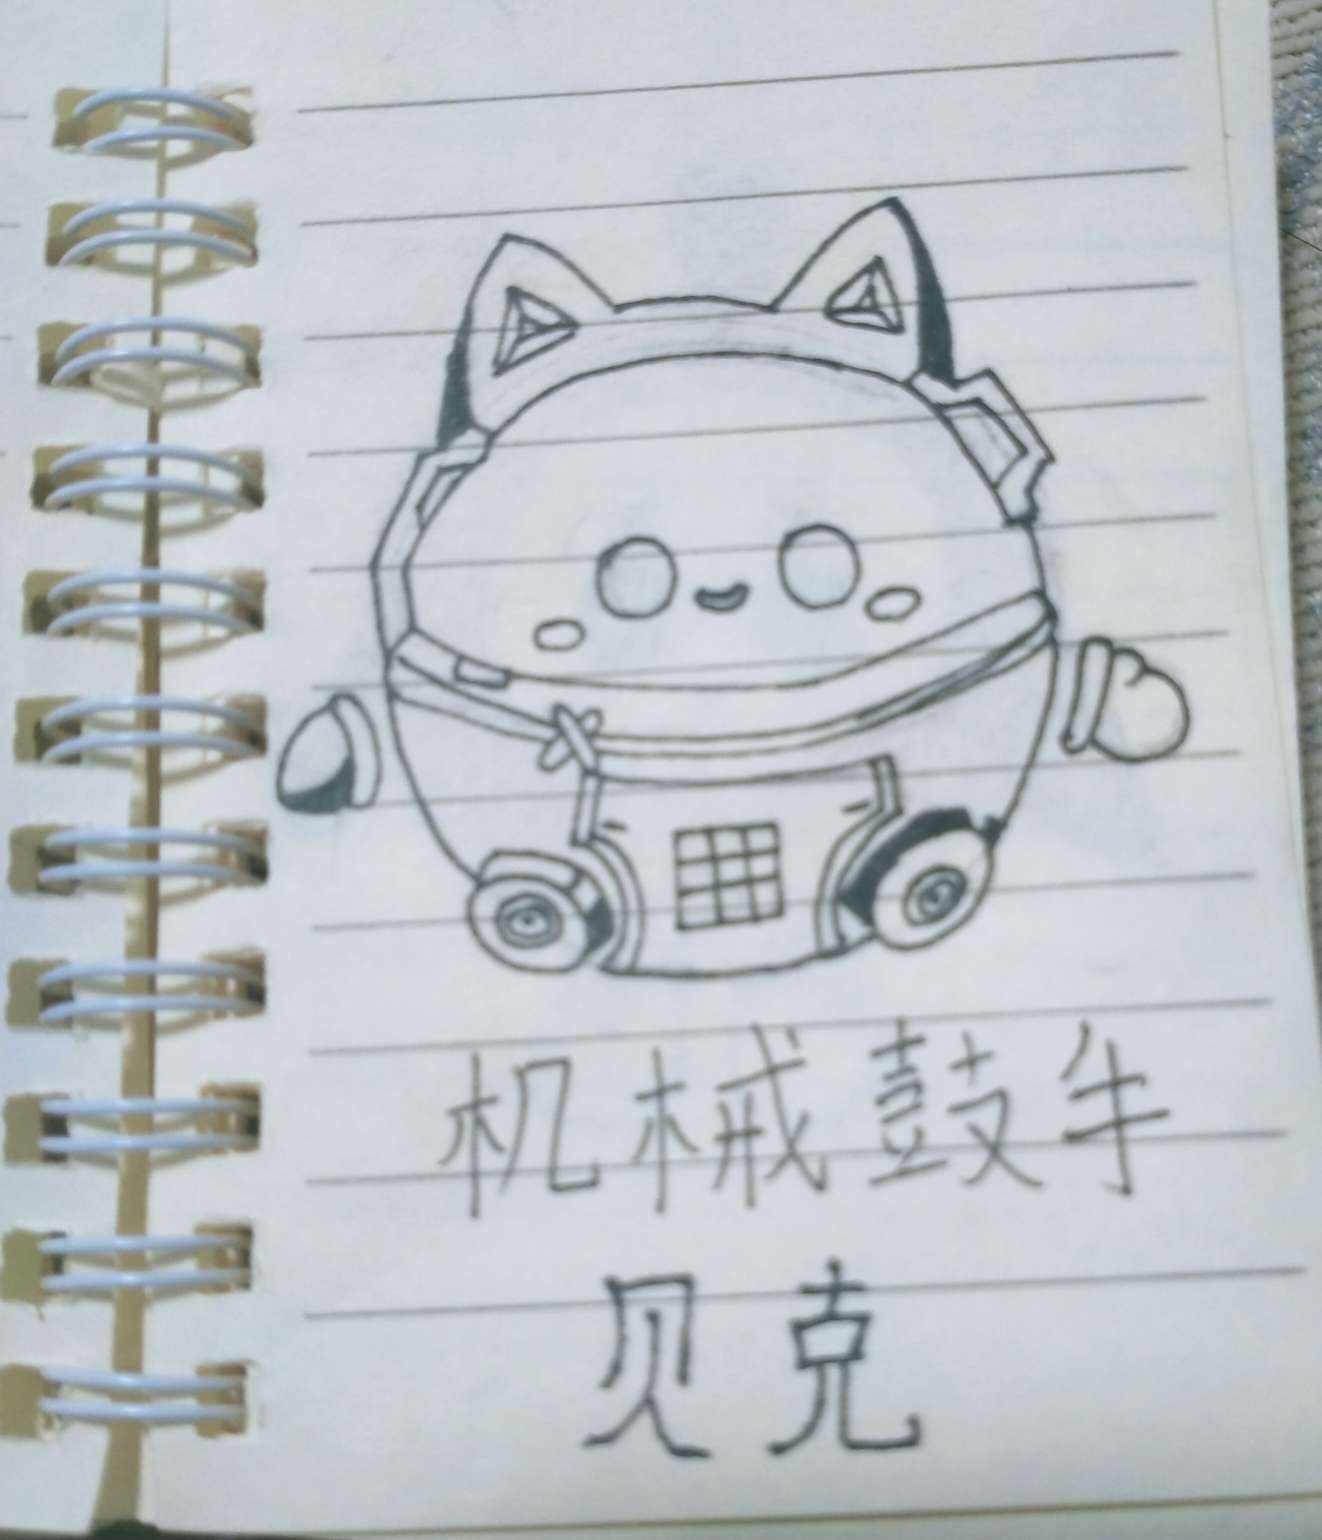 机械鼓手
贝克